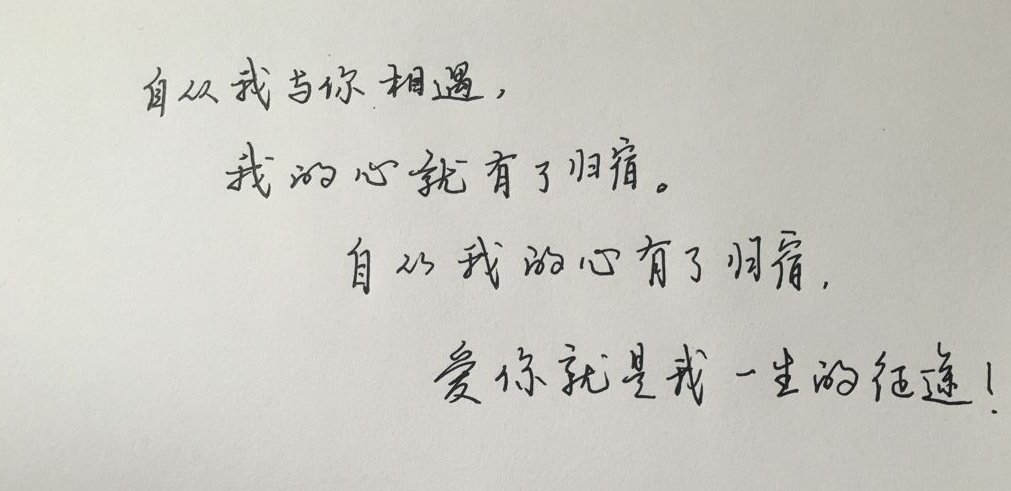 自从我与你相遇，
我的心就有了归宿。
自从我的心有了归宿，
爱你就是我一生的征途！